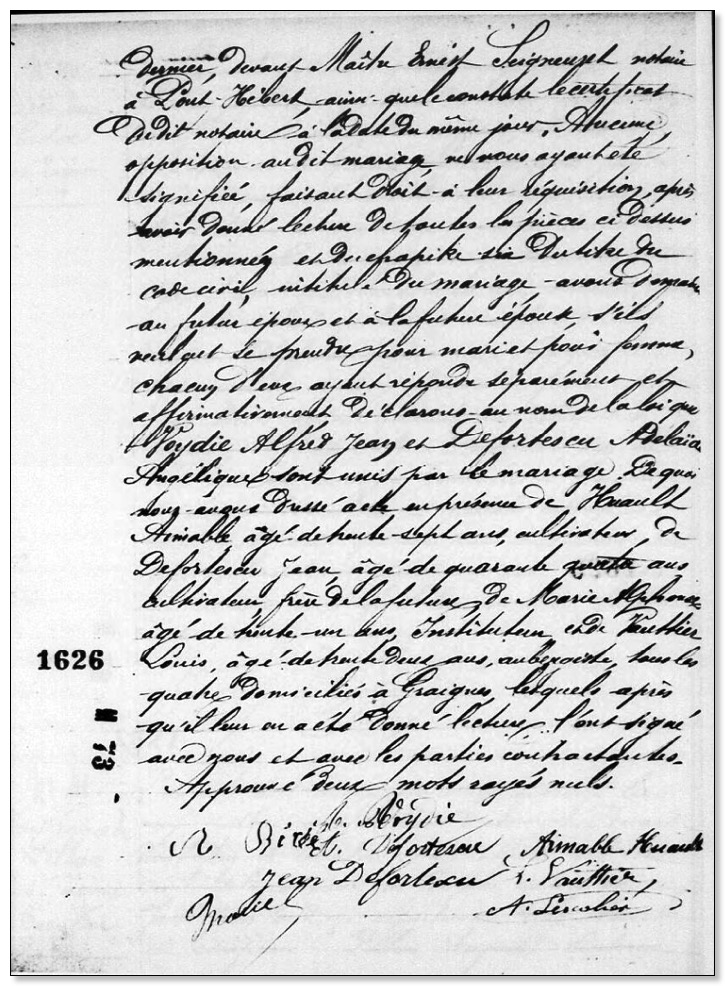 dernier, devant Maître Ernest Seigneuret notaire
à Pont-Hébert, ainsi que le constate le certificat
du dit notaire à la date du même jour. Aucune
opposition au dit mariage ne nous ayant été
signifiée, faisant droit à leur réquisition, après
avoir donné lecture de toutes les pièces ci-dessus
mentionnées et du chapitre six du titre du
code civil, intitulé du mariage avons demandé
au futur époux et à la future épouse s'ils
veulent se prendre pour mari et pour femme,
chacun d'eux ayant répondu séparément et
affirmativement déclarons au nom de la loi que
Voydie Alfred Jean et Defortescu Adelaïde
Angélique sont unis par le mariage. De quoi
nous avons dressé acte en présence de Huault
Aimable âgé de trente-sept ans, cultivateur, de
Defortescu Jean, âgé de quarante ans
cultivateur, frère de la future, de Marie Alphonse
âgé de trente-un ans, Instituteur, et de Vauttier
1626
Louis, âgé de trente deux ans, aubergiste, tous les
quatre domiciliés à Graignes, lesquels après
qu'il leur en a été donné lecture, l'ont signé
avec nous et avec les parties contractantes.
73
Approuvé deux mots rayés nuls.
A. Voydie
A. Defortescu Aimable Huault
Jean Defortescu L. Vauttier
Marie A. Lescalier